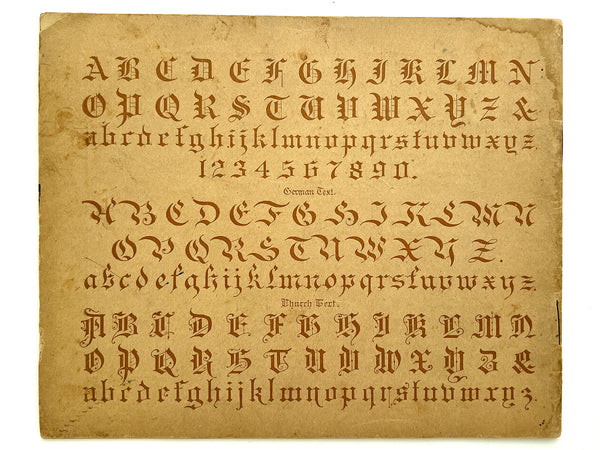 A B C D E F G H I J K L M N
O P Q R S T U V W X Y Z &
a b c d e f g h i j k l m n o p q r s t u v w x y z.
1 2 3 4 5 6 7 8 9 0.
German Text.
A B C D E F G H I J K L M N
O P Q R S T U V W X Y Z.
a b c d e f g h i j k l m n o p q r s t u v w x y z.
Church Text.
A B C D E F G H I J K L M N
O P Q R S T U V W X Y Z &
a b c d e f g h i j k l m n o p q r s t u v w x y z.